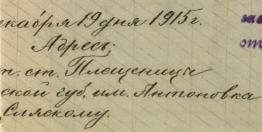 екабря 19 дня 1915 г.
Адресъ:
ст. Плещеницы
ской губ. им. Антоновка